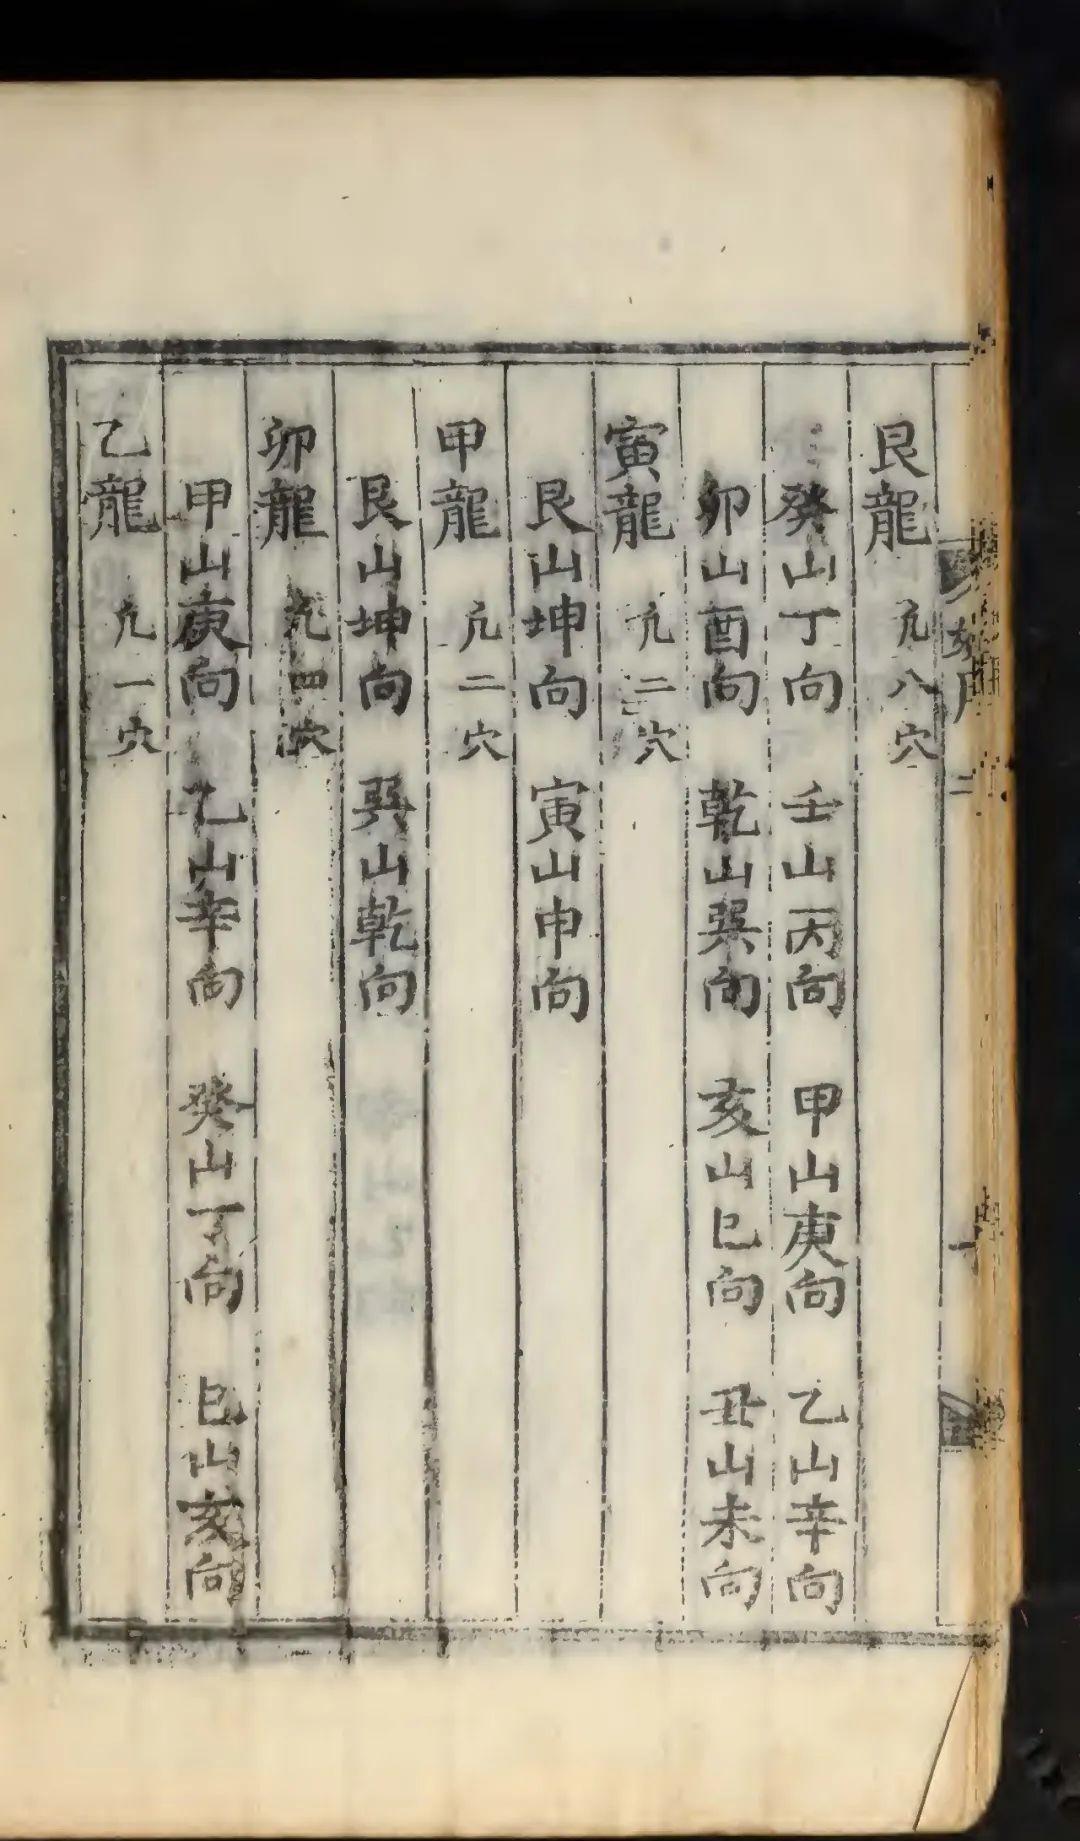 艮龍 凢八穴
癸山丁向 壬山丙向 甲山庚向 乙山辛向
卯山酉向 乾山巽向 亥山巳向 丑山未向
寅龍 凢二穴
艮山坤向 寅山申向
甲龍 凢二穴
艮山坤向 巽山乾向
卯龍 凢四穴
甲山庚向 乙山辛向 癸山丁向 巳山亥向
乙龍 凢一穴